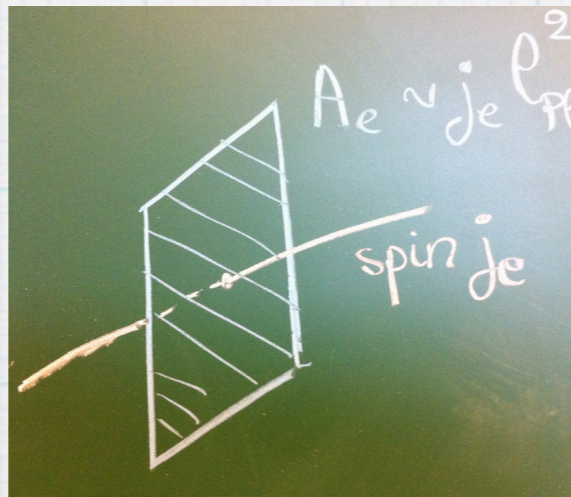 A_e ~ j_e ℓ_Pl^2
spin j_e